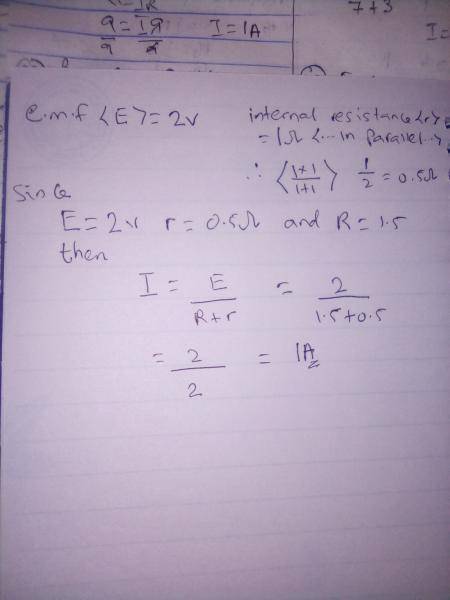 9 = IR I = 1A
9 9
7+3
I =
e.m.f <E> = 2v internal resistance <r>
= 1Ω <... in parallel..>
∴ <1×1/1+1> 1/2 = 0.5Ω
Since
E = 2v r = 0.5Ω and R = 1.5
then
I = E/R+r = 2/1.5+0.5
= 2/2 = 1A